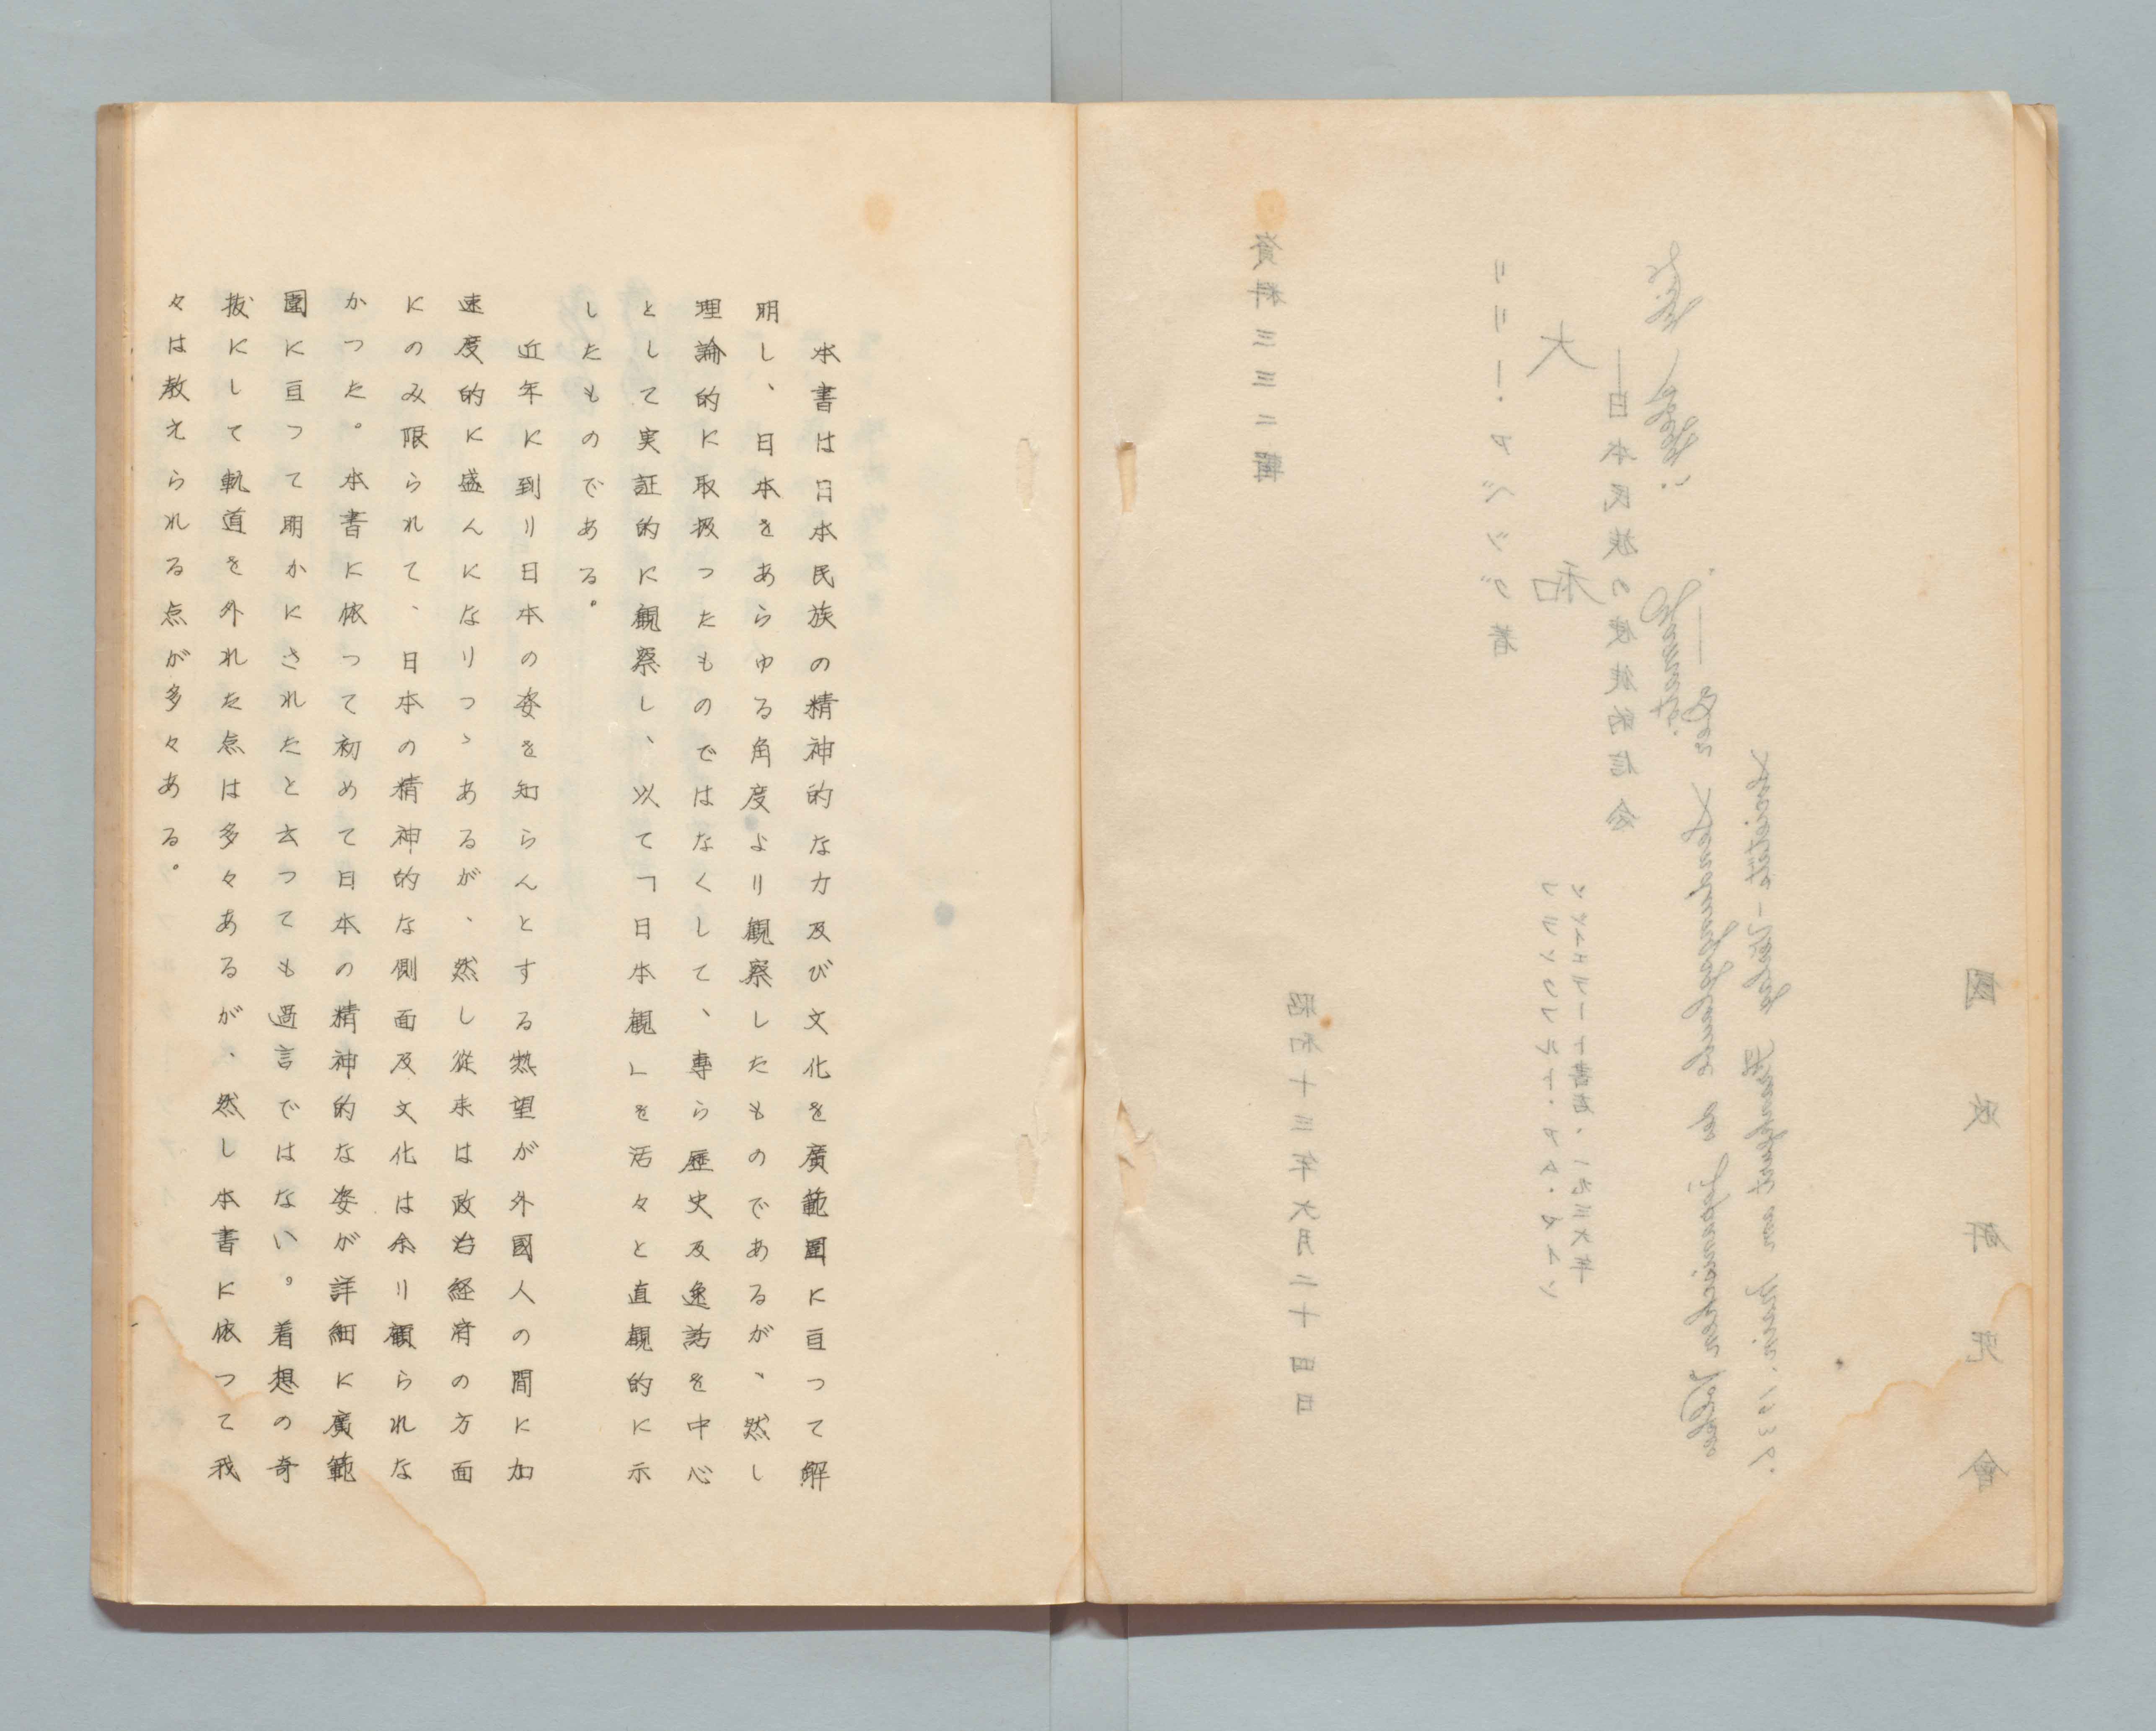 資料三三二輯
昭和十三年六月二十四日
リリー・アベッグ著
大和
フランクフルト・アム・マイン
ソシイエテート書店、一九三六年
―日本民族の使徒的信念―
國政研究會
本書は日本民族の精神的な力及び文化を廣範圍に亘つて解
明し、日本をあらゆる角度より観察したものであるが、然し
理論的に取扱つたものではなくして、專ら歷史及逸話を中心
として実証的に観察し、以て「日本観」を活々と直観的に示
したものである。
近年に到り日本の姿を知らんとする熱望が外國人の間に加
速度的に盛んになりつゝあるが、然し從来は政治経済の方面
にのみ限られて、日本の精神的な側面及文化は余り顧られな
かつた。本書に依つて初めて日本の精神的な姿が詳細に廣範
圍に亘つて明かにされたと云つても過言ではない。着想の奇
拔にして軌道を外れた点は多々あるが、然し本書に依つて我
々は教えられる点が多々ある。